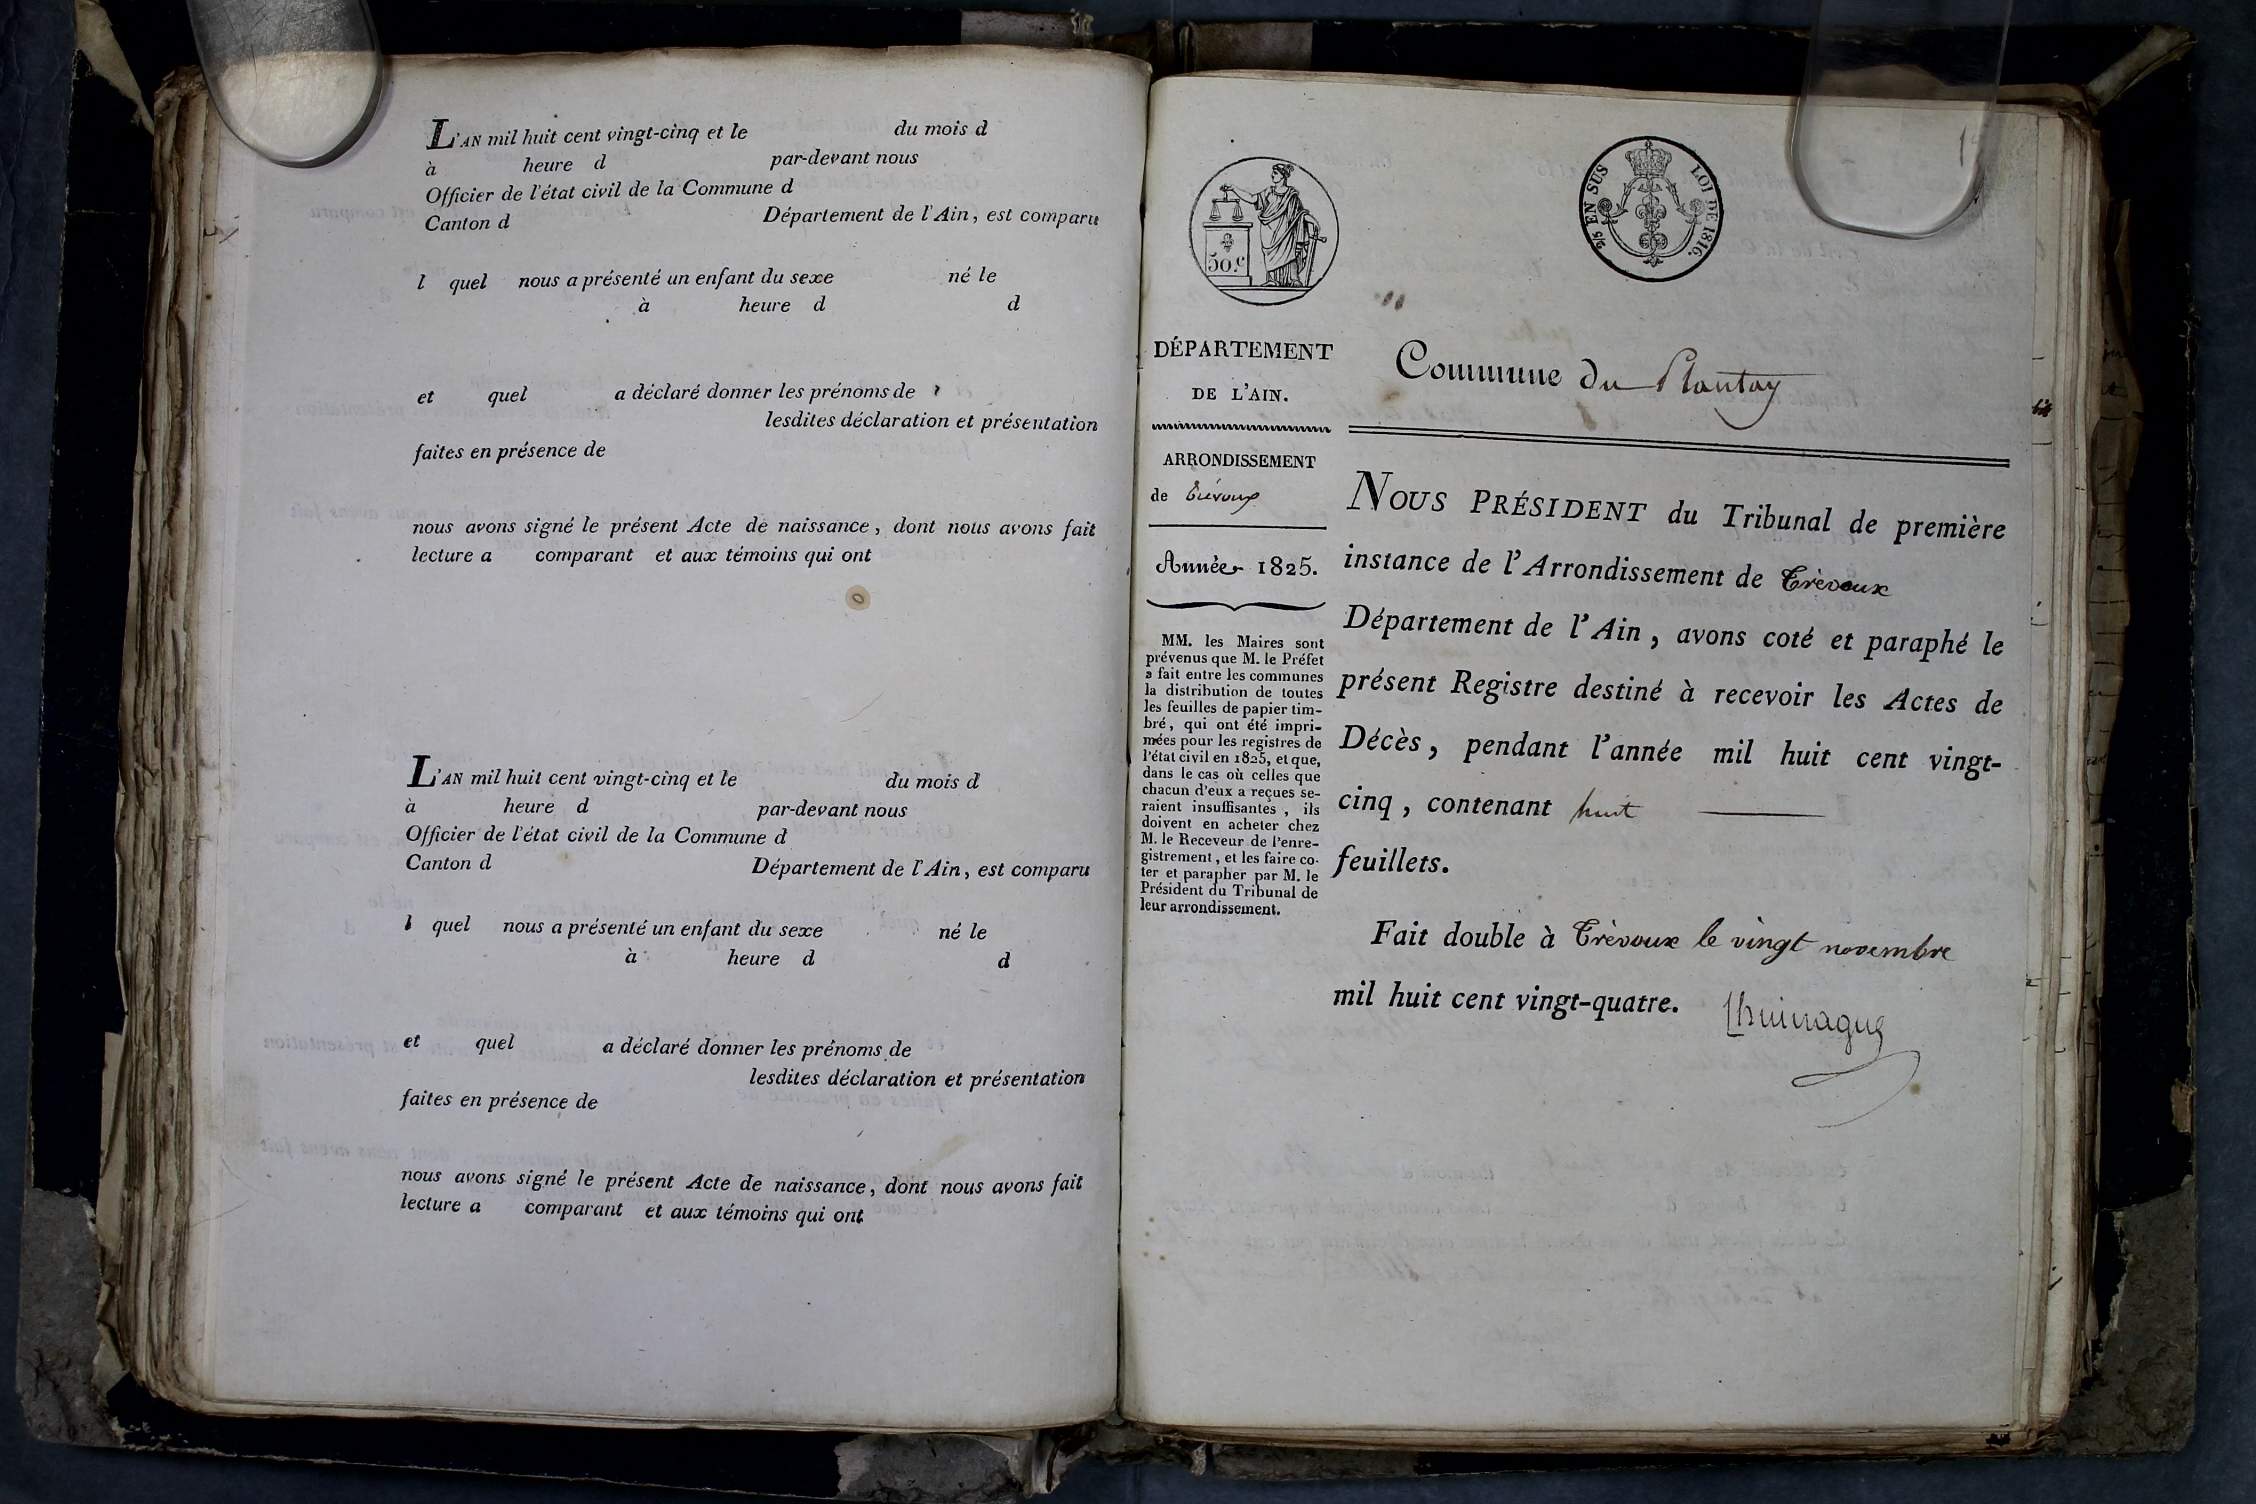 L'AN mil huit cent vingt-cinq et le du mois d
à heure d par-devant nous
Officier de l'état civil de la Commune d
Canton d Département de l'Ain, est comparu
l quel nous a présenté un enfant du sexe né le
à heure d d
et quel a déclaré donner les prénoms de
lesdites déclaration et présentation
faites en présence de
nous avons signé le présent Acte de naissance, dont nous avons fait
lecture a comparant et aux témoins qui ont
L'AN mil huit cent vingt-cinq et le du mois d
à heure d par-devant nous
Officier de l'état civil de la Commune d
Canton d Département de l'Ain, est comparu
l quel nous a présenté un enfant du sexe né le
à heure d d
et quel a déclaré donner les prénoms de
lesdites déclaration et présentation
faites en présence de
nous avons signé le présent Acte de naissance, dont nous avons fait
lecture a comparant et aux témoins qui ont
50.c
EN SUS LOI DE 1816.
DÉPARTEMENT
DE L'AIN.
ARRONDISSEMENT
de Trévoux
Année 1825.
MM. les Maires sont
prévenus que M. le Préfet
a fait entre les communes
la distribution de toutes
les feuilles de papier tim-
bré, qui ont été impri-
mées pour les registres de
l'état civil en 1825, et que,
dans le cas où celles que
chacun d'eux a reçues se-
raient insuffisantes, ils
doivent en acheter chez
M. le Receveur de l'enre-
gistrement, et les faire co-
ter et parapher par M. le
Président du Tribunal de
leur arrondissement.
Commune du Plantay
NOUS PRÉSIDENT du Tribunal de première
instance de l'Arrondissement de Trévoux
Département de l'Ain, avons coté et paraphé le
présent Registre destiné à recevoir les Actes de
Décès, pendant l'année mil huit cent vingt-
cinq, contenant huit
feuillets.
Fait double à Trévoux le vingt novembre
mil huit cent vingt-quatre.